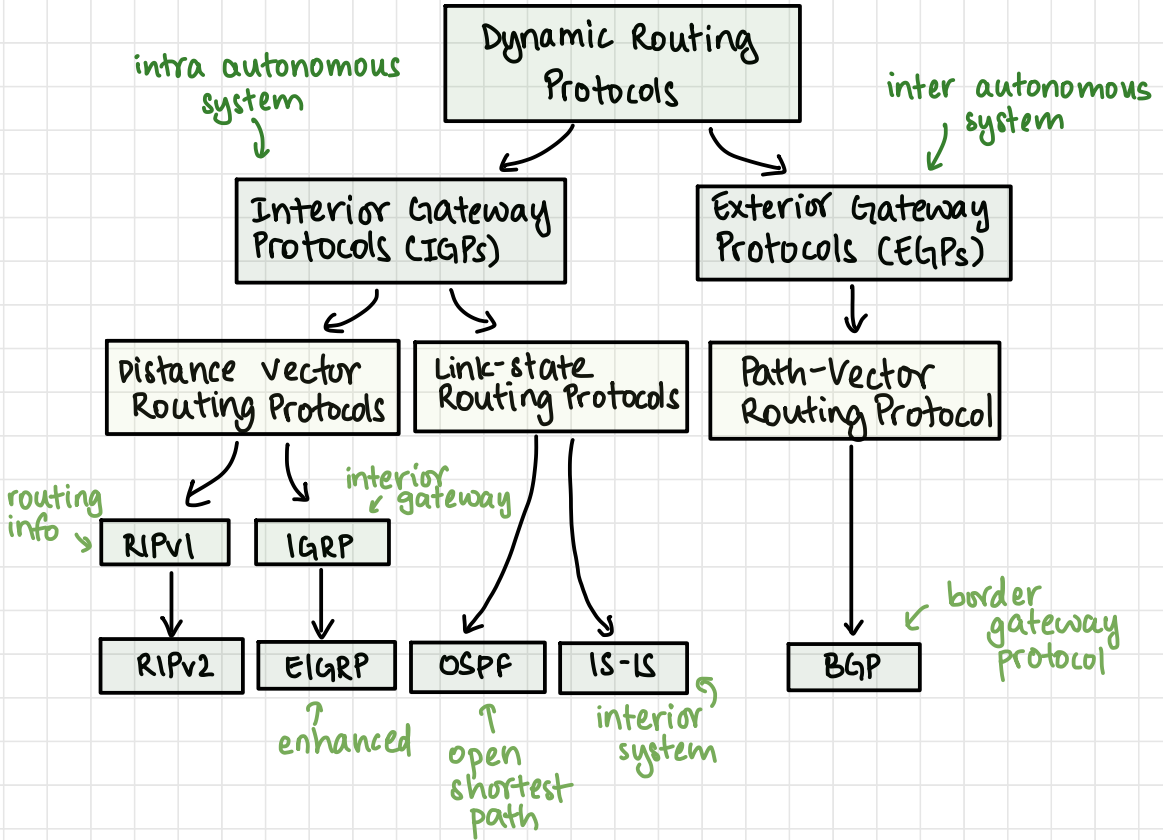 Dynamic Routing
Protocols
intra autonomous
system
inter autonomous
system
Interior Gateway
Protocols (IGPs)
Exterior Gateway
Protocols (EGPs)
Distance Vector
Routing Protocols
Link-state
Routing Protocols
Path-Vector
Routing Protocol
routing
info
interior
gateway
RIPv1
IGRP
RIPv2
EIGRP
OSPF
IS-IS
BGP
border
gateway
protocol
enhanced
open
shortest
path
interior
system